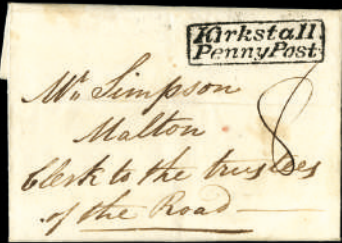 Kirkstall
Penny Post
Mr. Simpson
Malton
8
Clerk to the trustees
of the Road